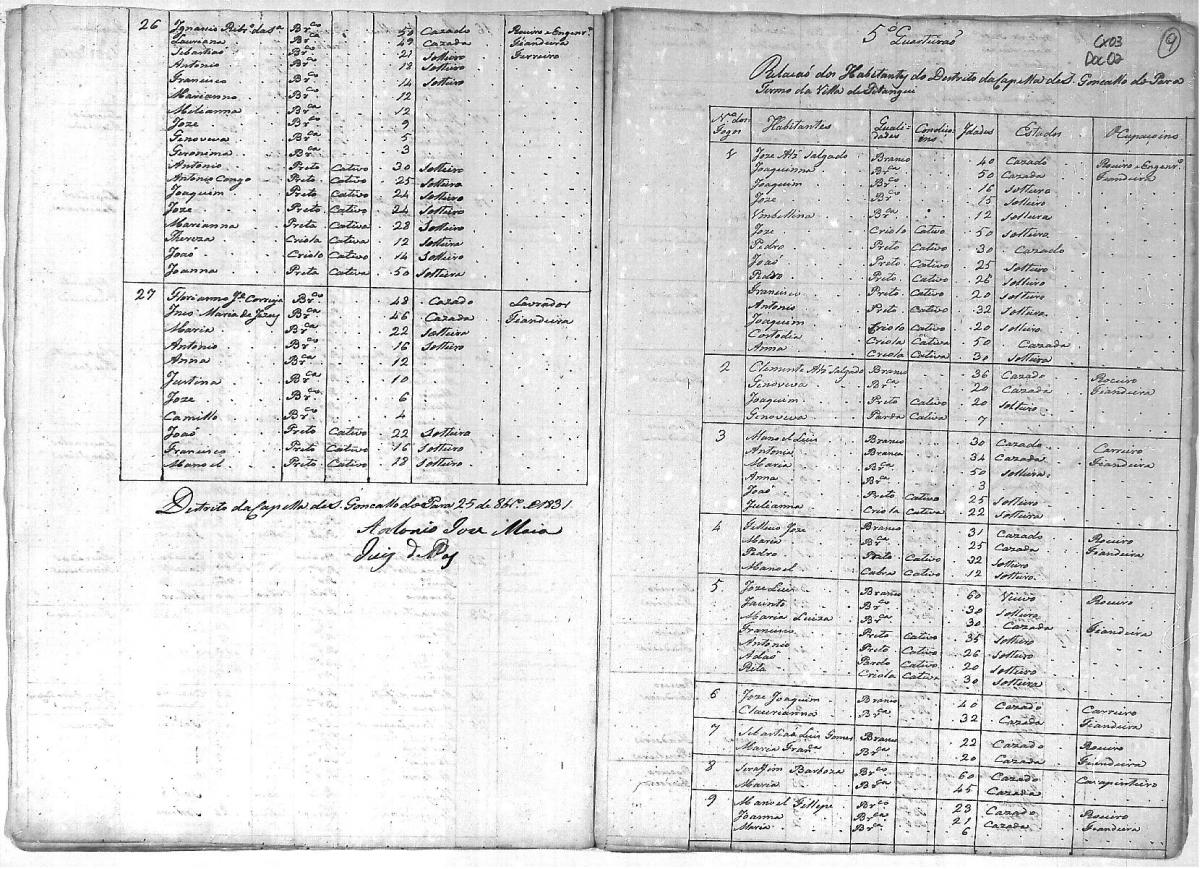 26 Ignacio Ribro da Sa Brco 50 Cazado Roceiro e Engenro
Lauriana Bra 49 Cazada Fiandeira
Sebastiao Brco 21 Solteiro Ferreiro
Antonio Brco 18 Solteiro
Francisco Brco 14 Solteiro
Marianno Brco 12
Melianna Brca 12
Joze Brco 9
Genoveva Brca 5
Geronima Brca 3
Antonio Preto Cativo 30 Solteiro
Antonio Congo Preto Cativo 25 Solteiro
Joaquim Preto Cativo 24 Solteiro
Joze Preto Cativo 24 Solteiro
Marianna Preta Cativa 28 Solteira
Thereza Criola Cativa 12 Solteira
Joaõ Criolo Cativo 14 Solteiro
Joanna Preta Cativa 50 Solteira
27 Florianno Je Correya Brco 48 Cazado Lavrador
Ines Maria de Jezus Brca 46 Cazada Fiandeira
Maria Brca 22 Solteira
Antonio Brco 16 Solteiro
Anna Brca 12
Justina Brca 10
Joze Brco 6
Camillo Brco 4
Joaõ Preto Cativo 22 Solteiro
Francisco Preto Cativo 16 Solteiro
Manoel Preto Cativo 18 Solteiro
Destrito da Capella de S. Goncallo do Para 25 de 8bro de 1831
Antonio Joze Maia
Juiz de Paz
5o Quarteiraõ
Cx03
Doc02
9
Relacaõ dos Habitantes do Destrito da Capella de S. Goncallo do Para
Termo da Villa de Pitangui
No dos Fogos Habitantes Qualidades Condicoins Idades Estados Ocupacoins
1 Joze Alz Salgado Branco 40 Cazado Roceiro e Engenro
Joaquinna Brca 50 Cazada Fiandeira
Joaquim Brco 16 Solteiro
Joze Brco 15 Solteiro
Umbellina Brca 12 Solteira
Joze Criolo Cativo 50 Solteiro
Pedro Preto Cativo 30 Cazado
Joaõ Preto Cativo 25 Solteiro
Pedro Preto Cativo 26 Solteiro
Francisco Preto Cativo 20 Solteiro
Antonio Preto Cativo 32 Solteiro
Joaquim Criolo Cativo 20 Solteiro
Custodia Criola Cativa 50 Cazada
Anna Criola Cativa 30 Solteira
2 Clemente Alz Salgado Branco 36 Cazado Roceiro
Genoveva Brca 20 Cazada Fiandeira
Joaquim Preto Cativo 20 Solteiro
Genoveva Parda Cativa 7
3 Manoel Luis Branco 30 Cazado Carreiro
Antonia Branca 34 Cazada Fiandeira
Maria Brca 50 Solteira
Anna Brca 3
Joaõ Preto Cativo 25 Solteiro
Julianna Criola Cativa 22 Solteira
4 Joze Branco 31 Cazado Roceiro
Maria Brca 25 Cazada Fiandeira
Pedro Preto Cativo 32 Solteiro
Manoel Cabra Cativo 12 Solteiro
5 Joze Luis Branco 60 Viuvo Roceiro
Jacinto Brco 30 Solteiro
Maria Luiza Brca 30 Cazada Fiandeira
Francisco Preto Cativo 35 Solteiro
Antonio Preto Cativo 26 Solteiro
Adaõ Pardo Cativo 20 Solteiro
Rita Criola Cativa 30 Solteira
6 Joze Joaquim Branco 40 Cazado Carreiro
Claurianna Brca 32 Cazada Fiandeira
7 Sebastiaõ Luis Gomes Branco 22 Cazado Roceiro
Maria Franca Brca 20 Cazada Fiandeira
8 Seraffim Barboza Brco 60 Cazado Carapinteiro
Maria Brca 45 Cazada
9 Manoel Fellipe Brco 23 Cazado Roceiro
Joanna Brca 21 Cazada Fiandeira
Maria Brca 6